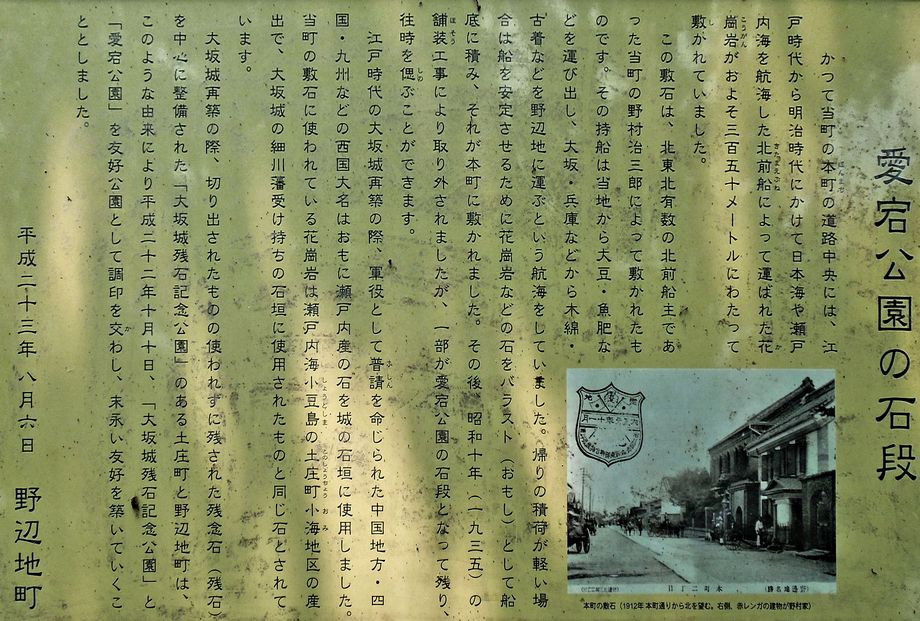 愛宕公園の石段
かつて当町の本町の道路中央には、江
戸時代から明治時代にかけて日本海や瀬戸
内海を航海した北前船によって運ばれた花
崗岩がおよそ三百五十メートルにわたって
敷かれていました。
この敷石は、北東北有数の北前船主であ
った当町の野村治三郎によって敷かれたも
のです。その持船は当地から大豆・魚肥な
どを運び出し、大坂・兵庫などから木綿・
古着などを野辺地に運ぶという航海をしていました。帰りの積荷が軽い場
合は船を安定させるために花崗岩などの石をバラスト（おもし）として船
底に積み、それが本町に敷かれました。その後、昭和十年（一九三五）の
舗装工事により取り外されましたが、一部が愛宕公園の石段となって残り、
往時を偲ぶことができます。
江戸時代の大坂城再築の際、軍役として普請を命じられた中国地方・四
国・九州などの西国大名はおもに瀬戸内産の石を城の石垣に使用しました。
当町の敷石に使われている花崗岩は瀬戸内海小豆島の土庄町小海地区の産
出で、大坂城の細川藩受け持ちの石垣に使用されたものと同じ石とされて
います。
大坂城再築の際、切り出されたものの使われずに残された残念石（残石）
を中心に整備された「大坂城残石記念公園」のある土庄町と野辺地町は、
このような由来により平成二十二年十月十日、「大坂城残石記念公園」と
「愛宕公園」を友好公園として調印を交わし、末永い友好を築いていくこ
ととしました。
平成二十三年 八月六日 野辺地町
本町二丁目
本町の敷石（1912年 本町通りから北を望む。右側、赤レンガの建物が野村家）